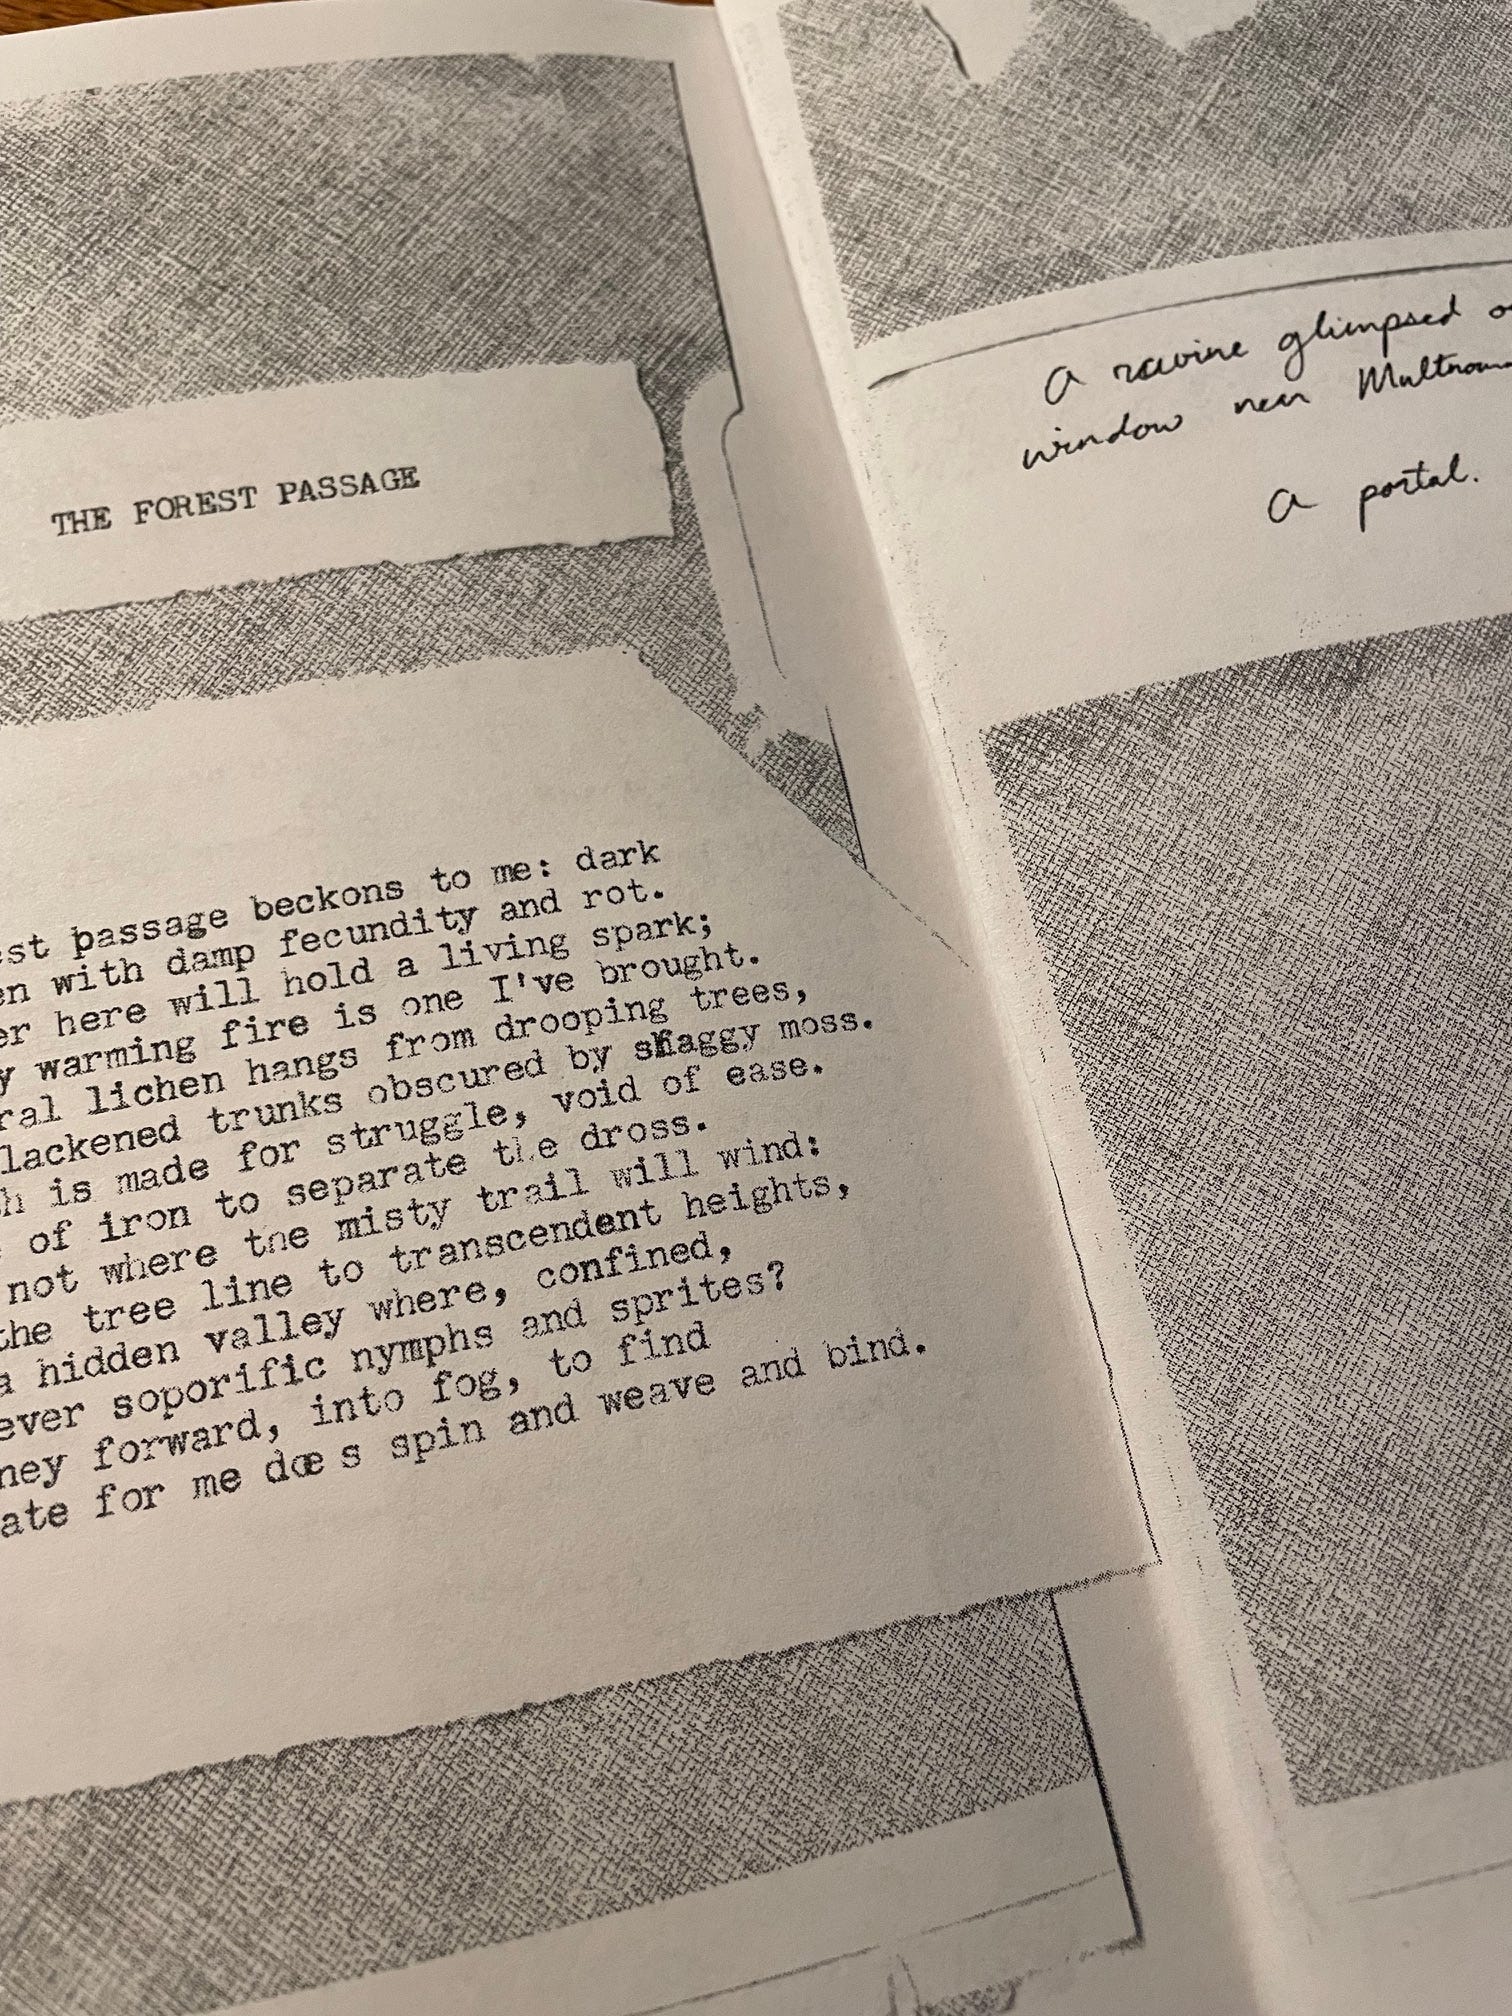 THE FOREST PASSAGE
est passage beckons to me: dark
en with damp fecundity and rot.
er here will hold a living spark;
y warming fire is one I've brought.
ral lichen hangs from drooping trees,
lackened trunks obscured by shaggy moss.
h is made for struggle, void of ease.
of iron to separate the dross.
not where the misty trail will wind:
the tree line to transcendent heights,
a hidden valley where, confined,
ever soporific nymphs and sprites?
ney forward, into fog, to find
ate for me does spin and weave and bind.
A ravine glimpsed o
window near Multnom
A portal.